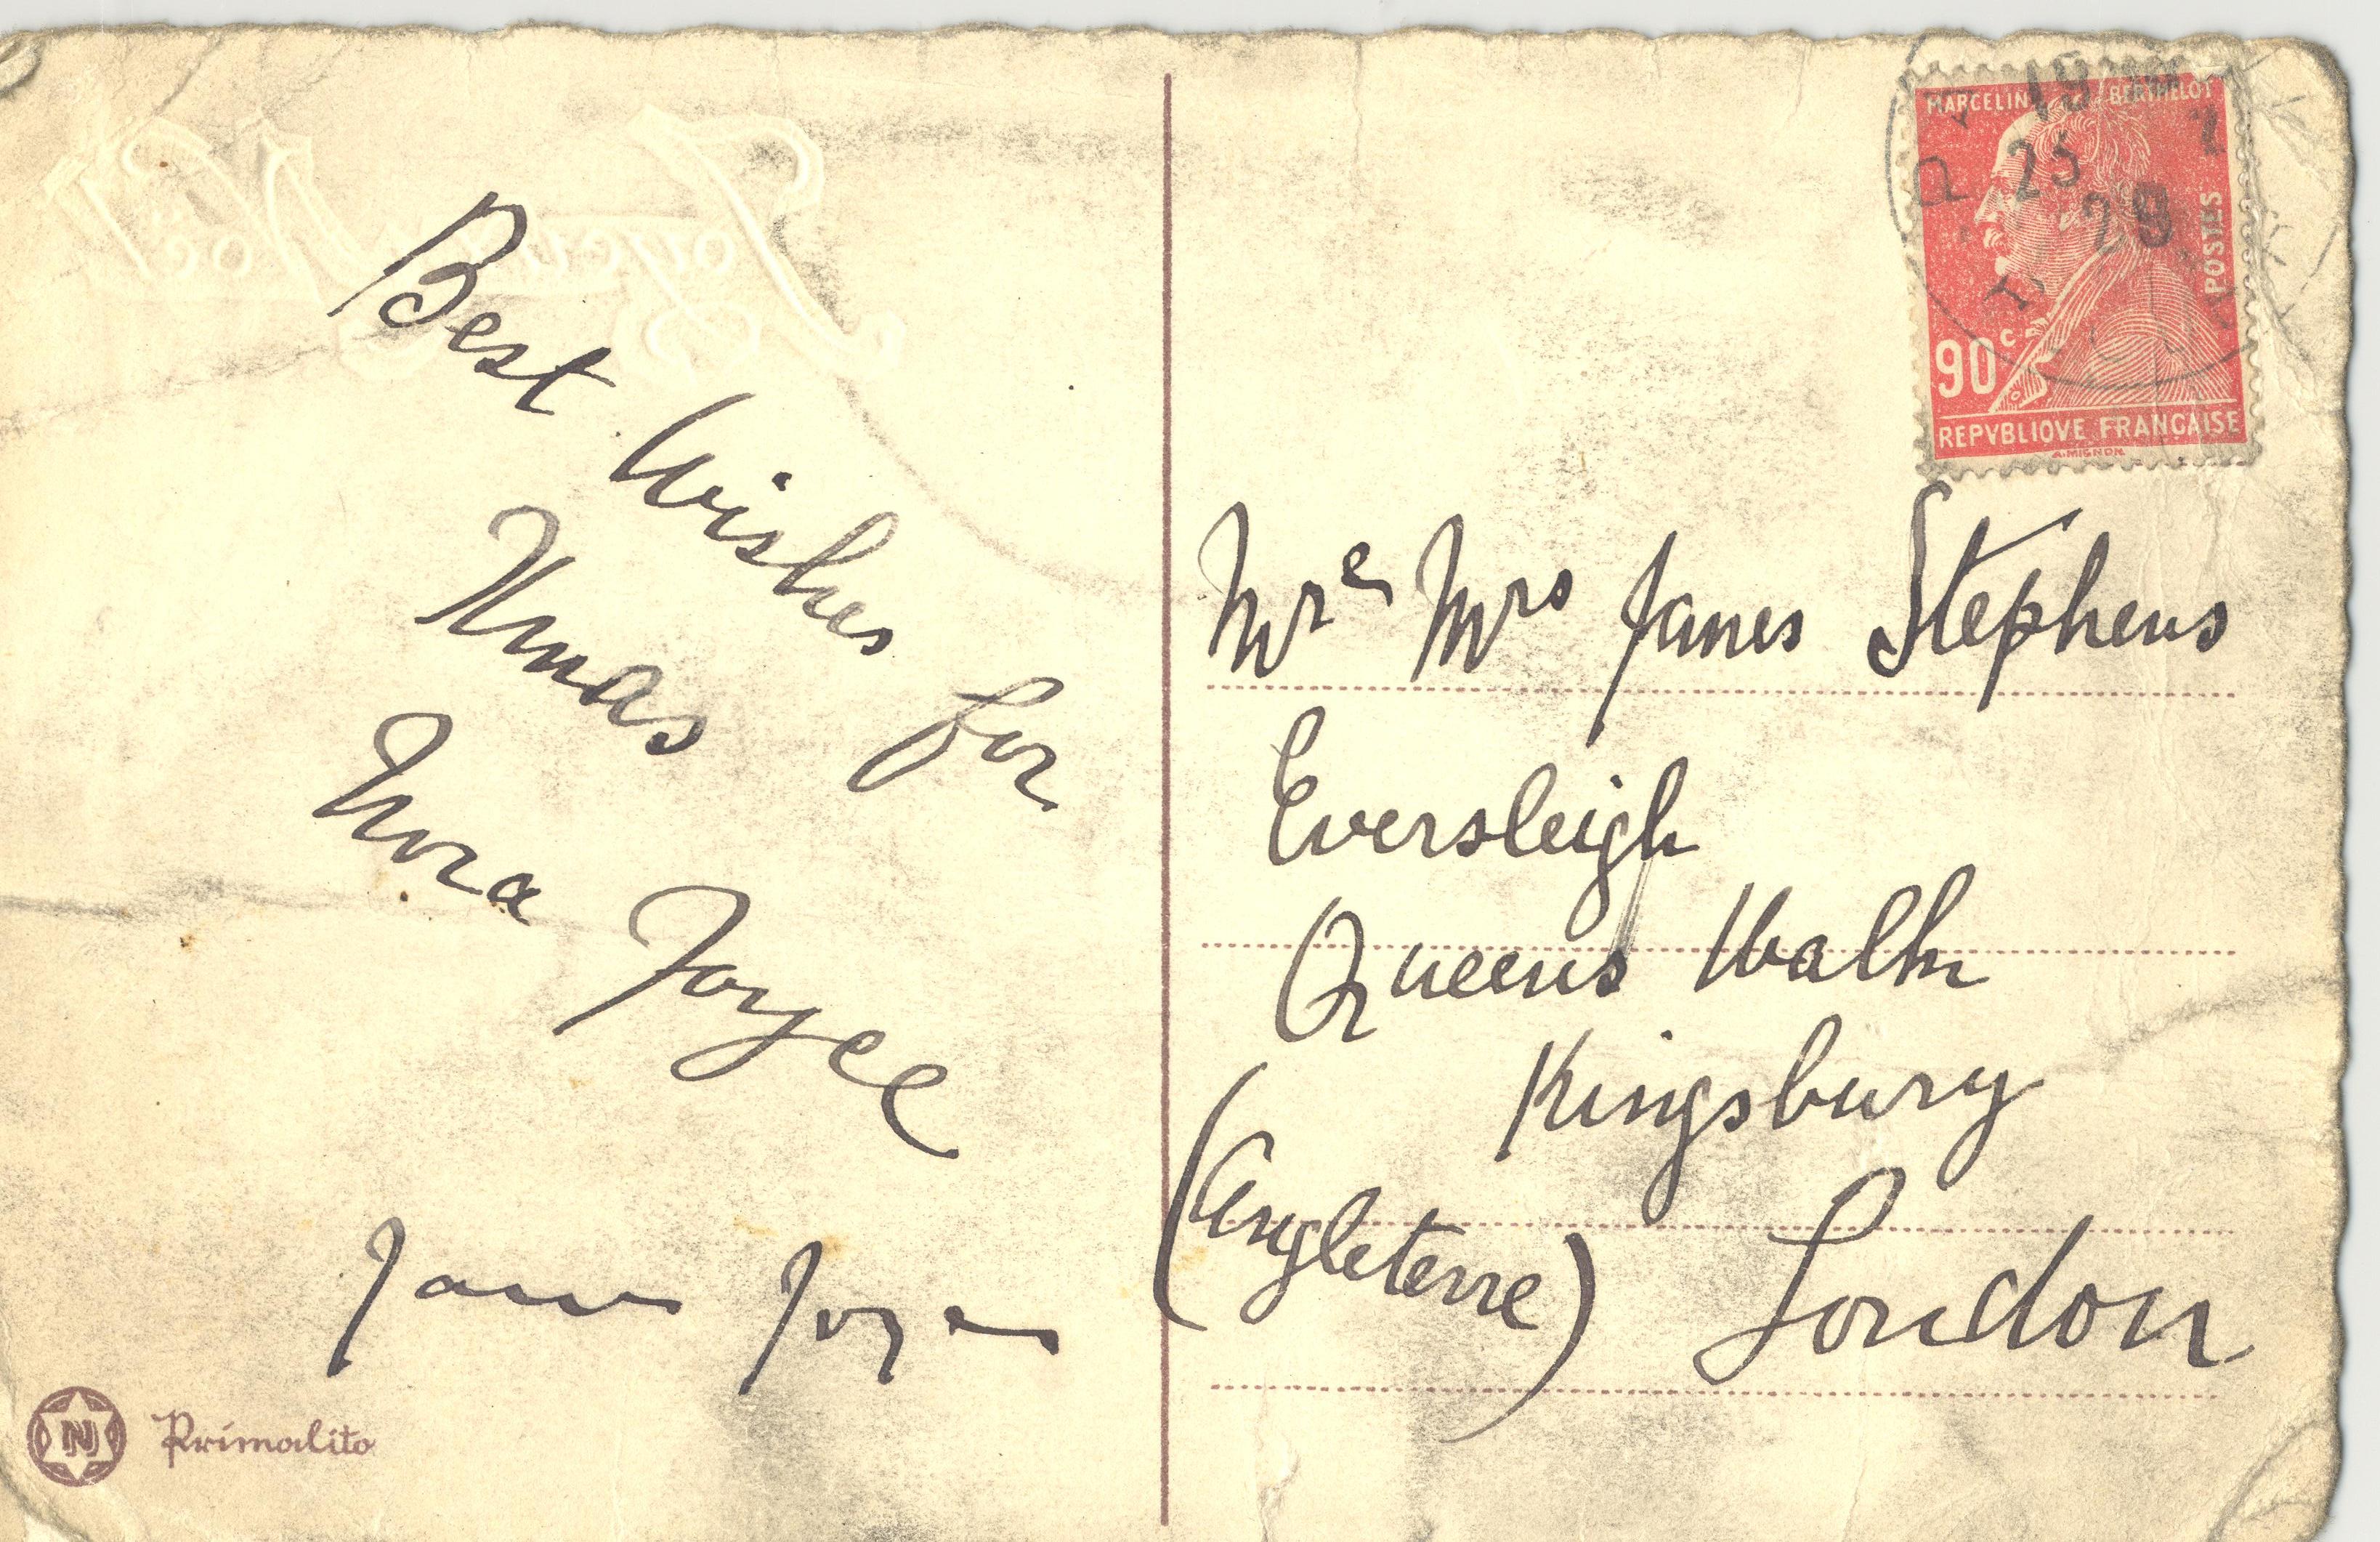 Joyeux Noël
Best Wishes for
Xmas
Nora Joyce
James Joyce
N Primalito
MARCELIN BERTHELOT
POSTES
90c
REPVBLIQVE FRANÇAISE
A.MIGNON
19
25
29
Mr e Mrs James Stephens
Eversleigh
Queens Walk
Kingsbury
(Angleterre) London